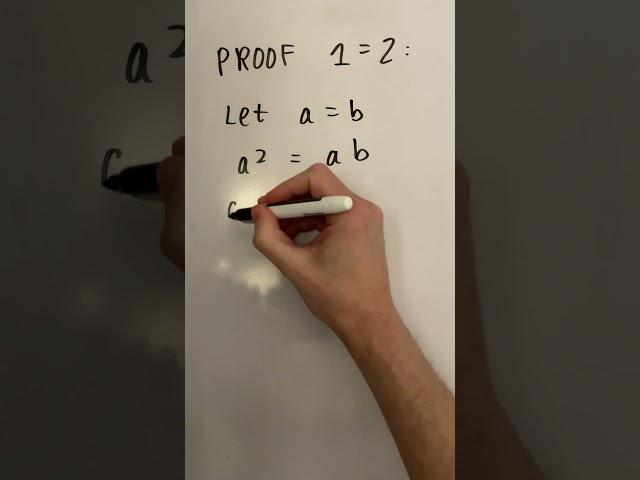 PROOF 1 = 2 :
Let a = b
a² = a b